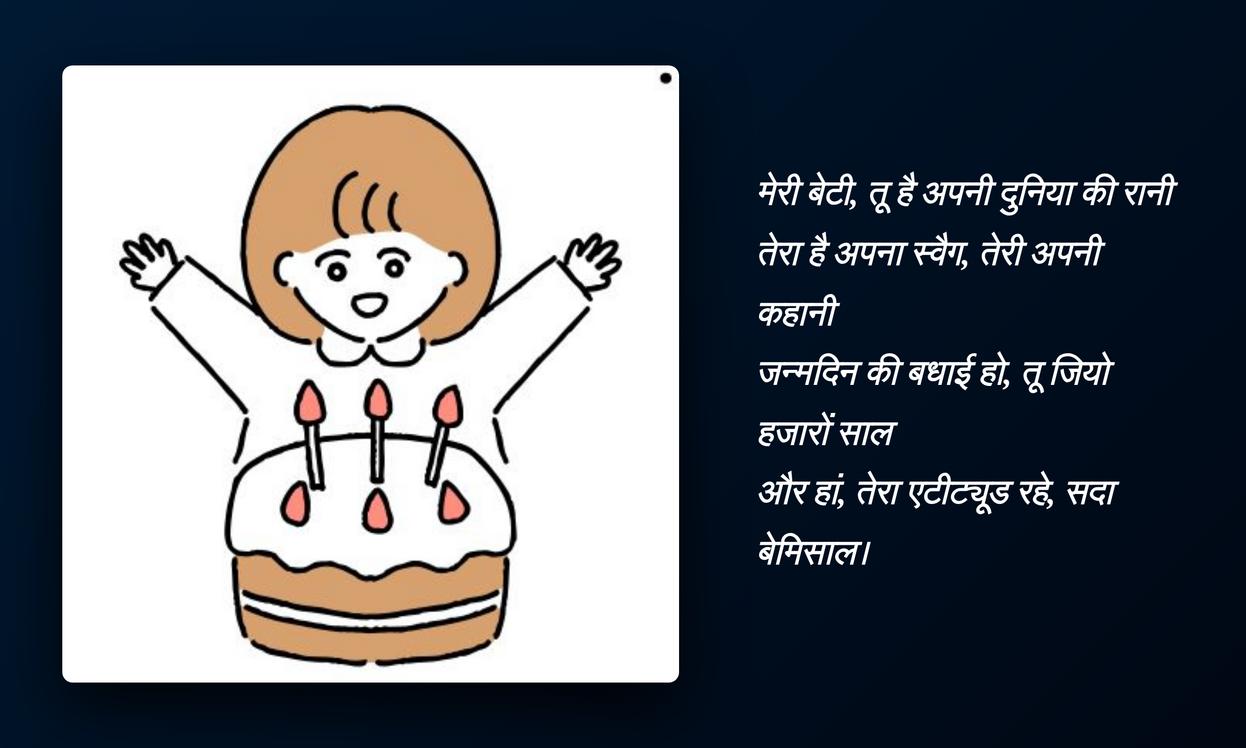 मेरी बेटी, तू है अपनी दुनिया की रानी
तेरा है अपना स्वैग, तेरी अपनी
कहानी
जन्मदिन की बधाई हो, तू जियो
हजारों साल
और हां, तेरा एटीट्यूड रहे, सदा
बेमिसाल।